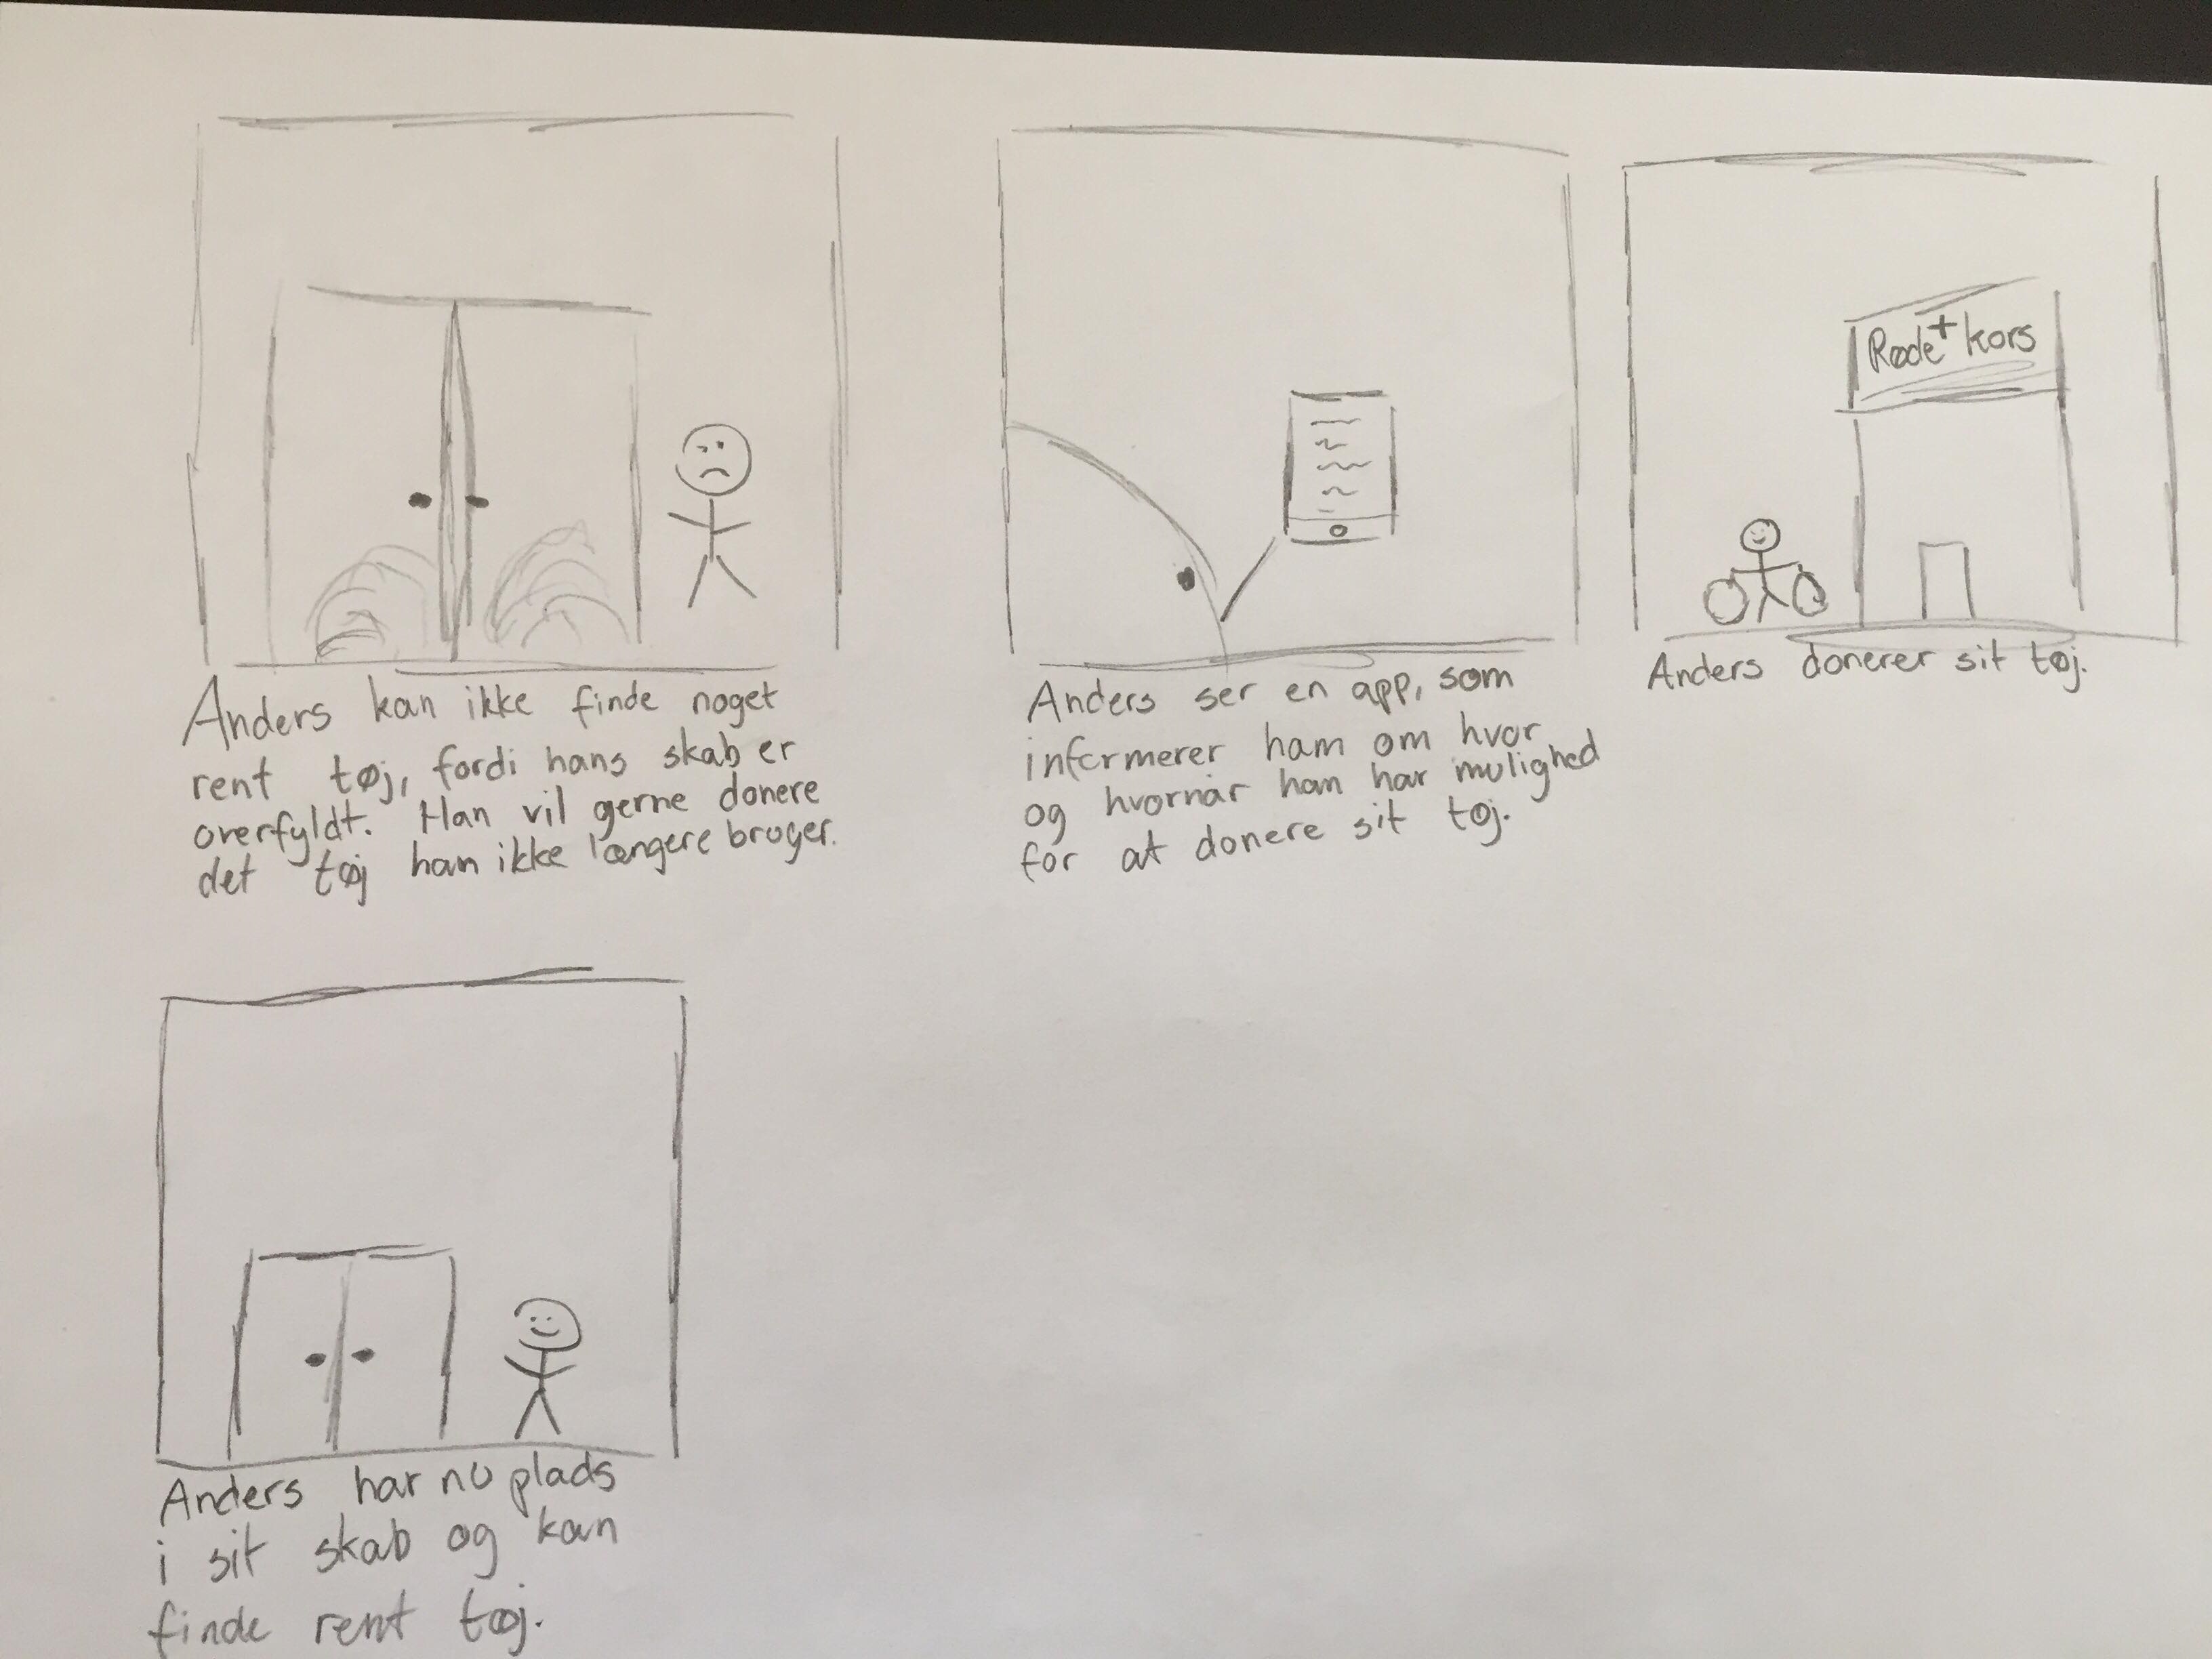 Anders kan ikke finde noget
rent tøj, fordi hans skab er
overfyldt. Han vil gerne donere
det tøj han ikke længere bruger.
Anders ser en app, som
informerer ham om hvor
og hvornår han har mulighed
for at donere sit tøj.
Røde + kors
Anders donerer sit tøj.
Anders har nu plads
i sit skab og kan
finde rent tøj.